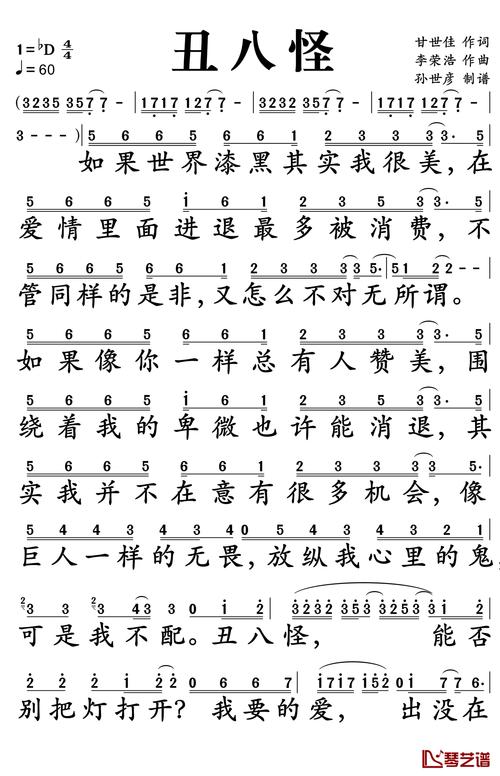 丑八怪
1=♭D 4/4
♩=60
甘世佳 作词
李荣浩 作曲
孙世彦 制谱
(3235 3577 - | 1717 1277 - | 3232 3577 - | 1717 1277 -
3 - - -)| 5 6 6 5 6 6 1 2 3 3 3 3 3· 5
如果世界漆黑其实我很美,在
5 6 6 5 i 6 1 2 3 5 3 3 2· 5
爱情里面进退最多被消费,不
5 6 6 5 6 6 1 2 3 3 3 3 3 5· 51 2 2 - -
管同样的是非,又怎么不对无所谓。
5 6 6 5 6 6 1 2 3 3 3 3 3· 5
如果像你一样总有人赞美,围
5 6 6 5 i 6 1 2 3 5 3 3 2· 5
绕着我的卑微也许能消退,其
5 6 6 5 6 6 1 2 3 3 3 2 3 5·
实我并不在意有很多机会,像
5 4 4 3 4 3 4 0 5 4 3 4 3 2 1
巨人一样的无畏,放纵我心里的鬼,
3 3 2 4 3 3 0 i 2
可是我不配。丑八怪,能否
2 2 2 i 2 2 0 6 6 7
别把灯打开?我要的爱,出没在
琴艺谱